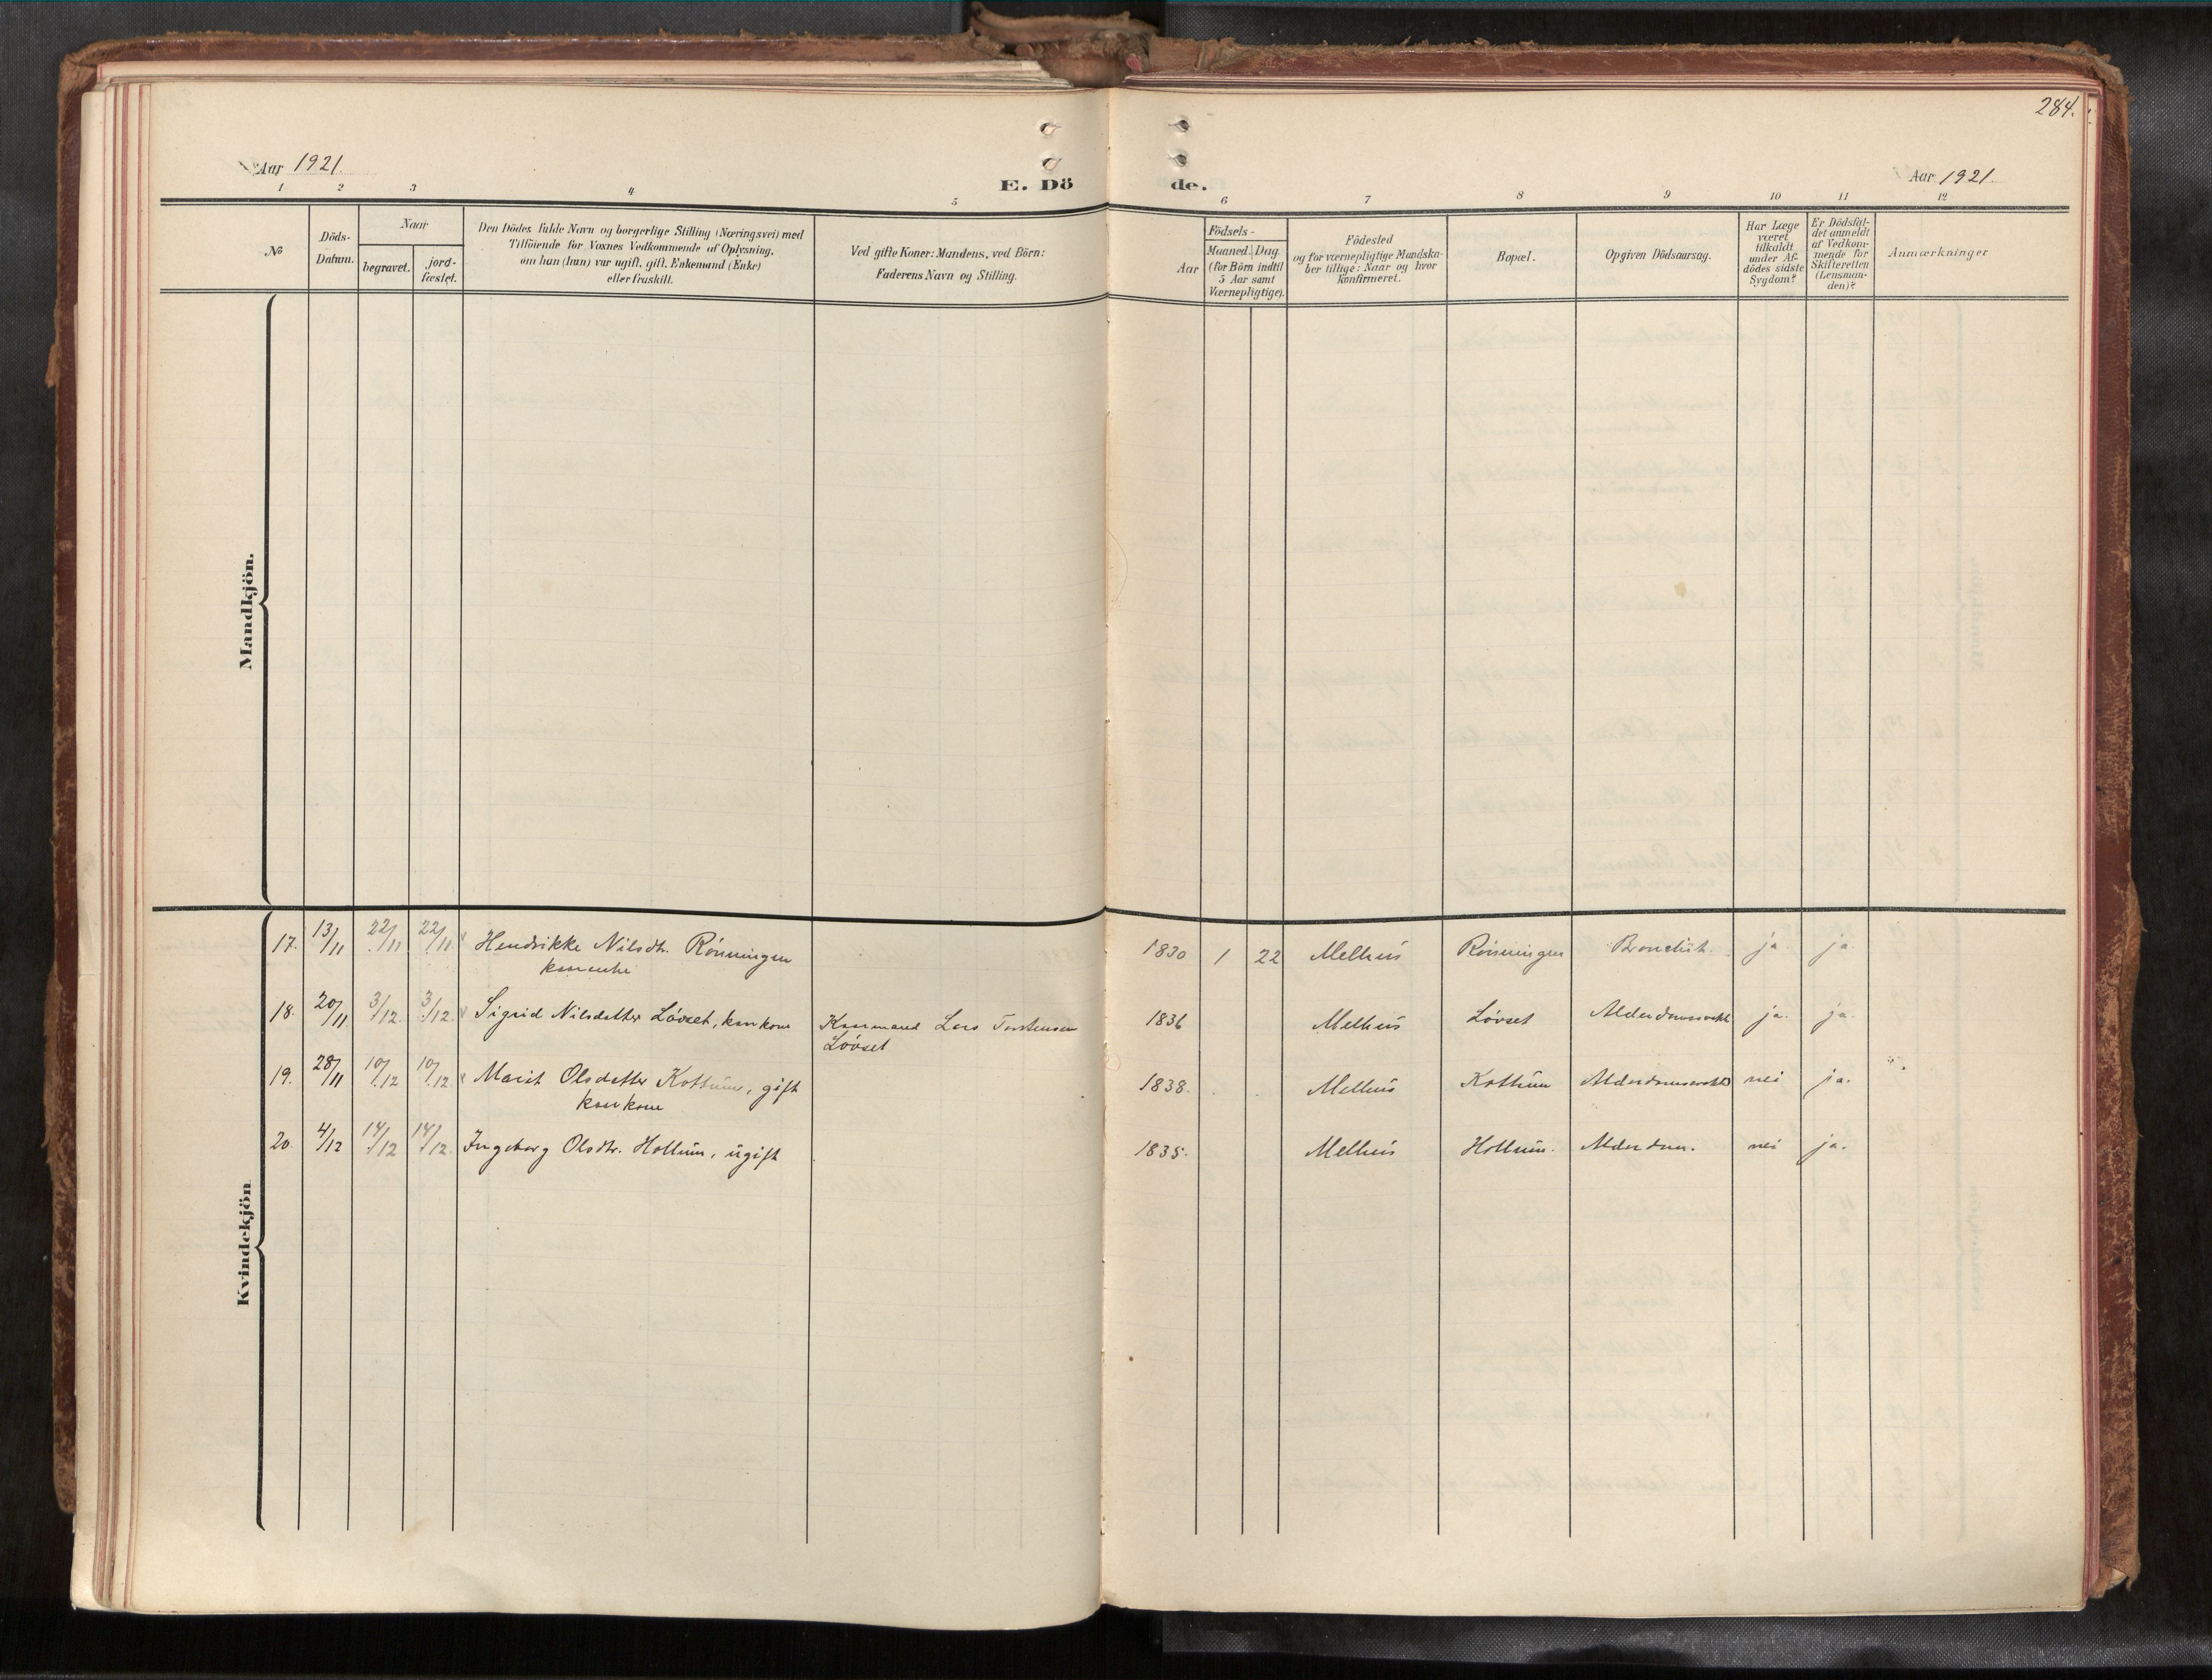 284.
Aar 1921.
E. Dö
de.
Aar 1921.
1 2 3 4 5 6 7 8 9 10 11 12
No
Döds-
Datum.
Naar
begravet.
jord-
fæstet.
Den Dödes fulde Navn og borgerlige Stilling (Næringsvei) med
Tilföiende for Voxnes Vedkommende af Oplysning,
om han (hun) var ugift, gift, Enkemand (Enke)
eller fraskilt.
Ved gifte Koner: Mandens, ved Börn:
Faderens Navn og Stilling.
Födsels-
Aar
Maaned. Dag.
(for Börn indtil
5 Aar samt
Værnepligtige).
Födested
og for værnepligtige Mandska-
ber tillige: Naar og hvor
konfirmeret.
Bopæl.
Opgiven Dödsaarsag.
Har Læge
været
tilkaldt
under Af-
dödes sidste
Sygdom?
Er Dödsfal-
det anmeldt
af Vedkom-
mende for
Skifteretten
(Lensman-
den)?
Anmærkninger
Mandkjön.
Kvindekjön
17. 13/11 22/11 22/11 Hendrikke Nilsdtr. Rönningen 1830 1 22 Melhus Rönningen Bronchit. ja. ja.
18. 20/11 3/12. 3/12. Sigrid Nilsdatter Lövset, Kaarmand Lars Torstensen 1836 Melhus Lövset ja. ja.
Lövset
19. 28/11 10/12 10/12. Marit Olsdatter Kottum, gift 1838. Melhus Kottum nei ja.
20. 4/12 14/12 14/12. Ingeborg Olsdtr. Hollum, ugift 1835. Melhus Hollum. Alderdom. nei ja.